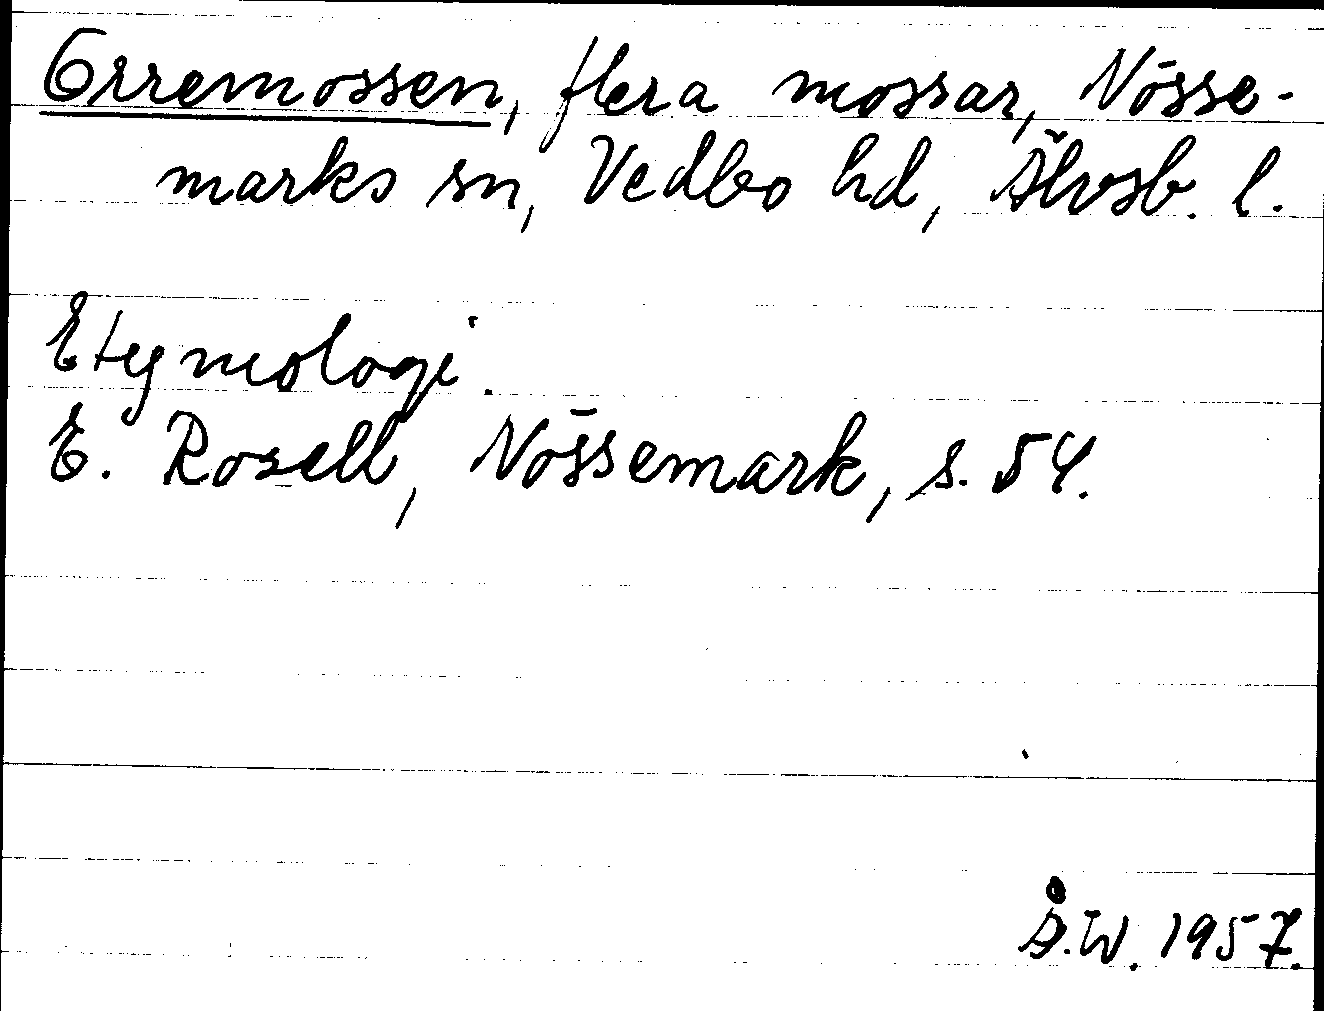 Orremossen, flera mossar, Nösse-
marks sn, Vedbo hd, Älvsb. l.
Etymologi.
E. Rosell, Nössemark, s. 54.
Å.W. 1957.